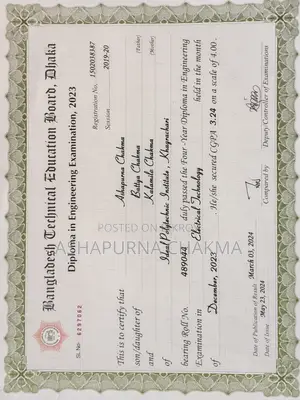 Bangladesh Technical Education Board, Dhaka
Diploma in Engineering Examination, 2023
SL. No. 6297062
Registration No. 1502038387
Session 2019-20
This is to certify that Ashapurna Chakma
son/daughter of Battya Chakma (Father)
and Kadamila Chakma (Mother)
of Ideal Polytechnic Institute, Khagrachari
bearing Roll No. 489044 duly passed the Four-Year Diploma in Engineering
Examination in Electrical Technology held in the month
of December, 2023 He/she secured CGPA 3.24 on a scale of 4.00.
Date of Publication of Result March 03, 2024
Date of Issue May 23, 2024
Compared by
Deputy Controller of Examinations
POSTED ON
ASHAPURNA CHAKMA